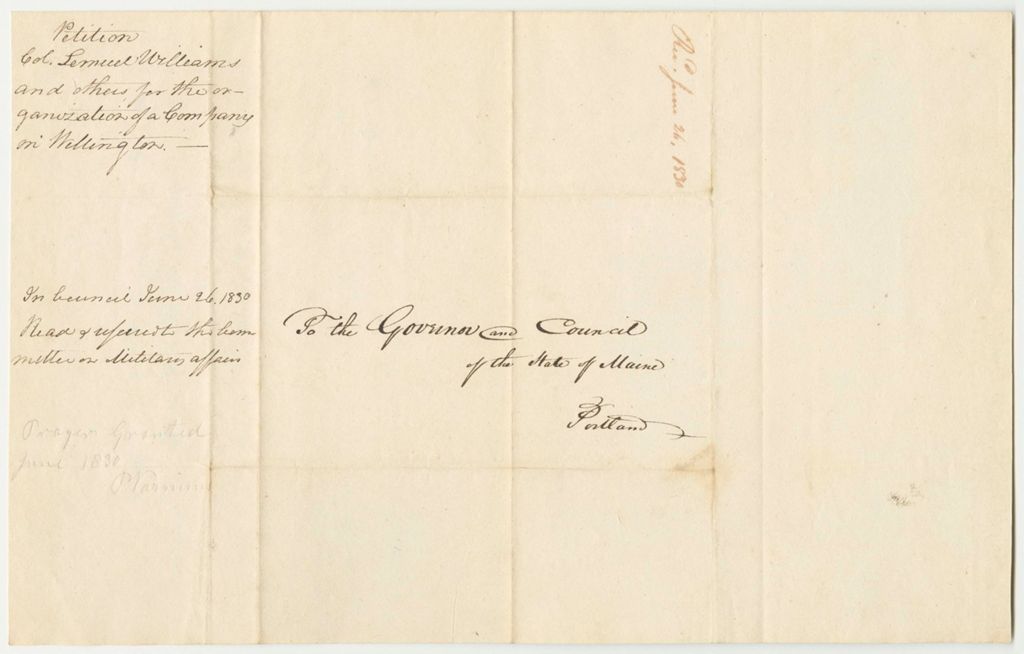 Petition
Col. Lemuel Williams
and others for the or-
ganization of a Company
in Wellington. —
In Council June 26, 1830
Read & referred to the Com
mittee on Military affairs
Prayer Granted
June 1830
Rec'd. June 26, 1830
To the Governor and Council
of the State of Maine
Portland